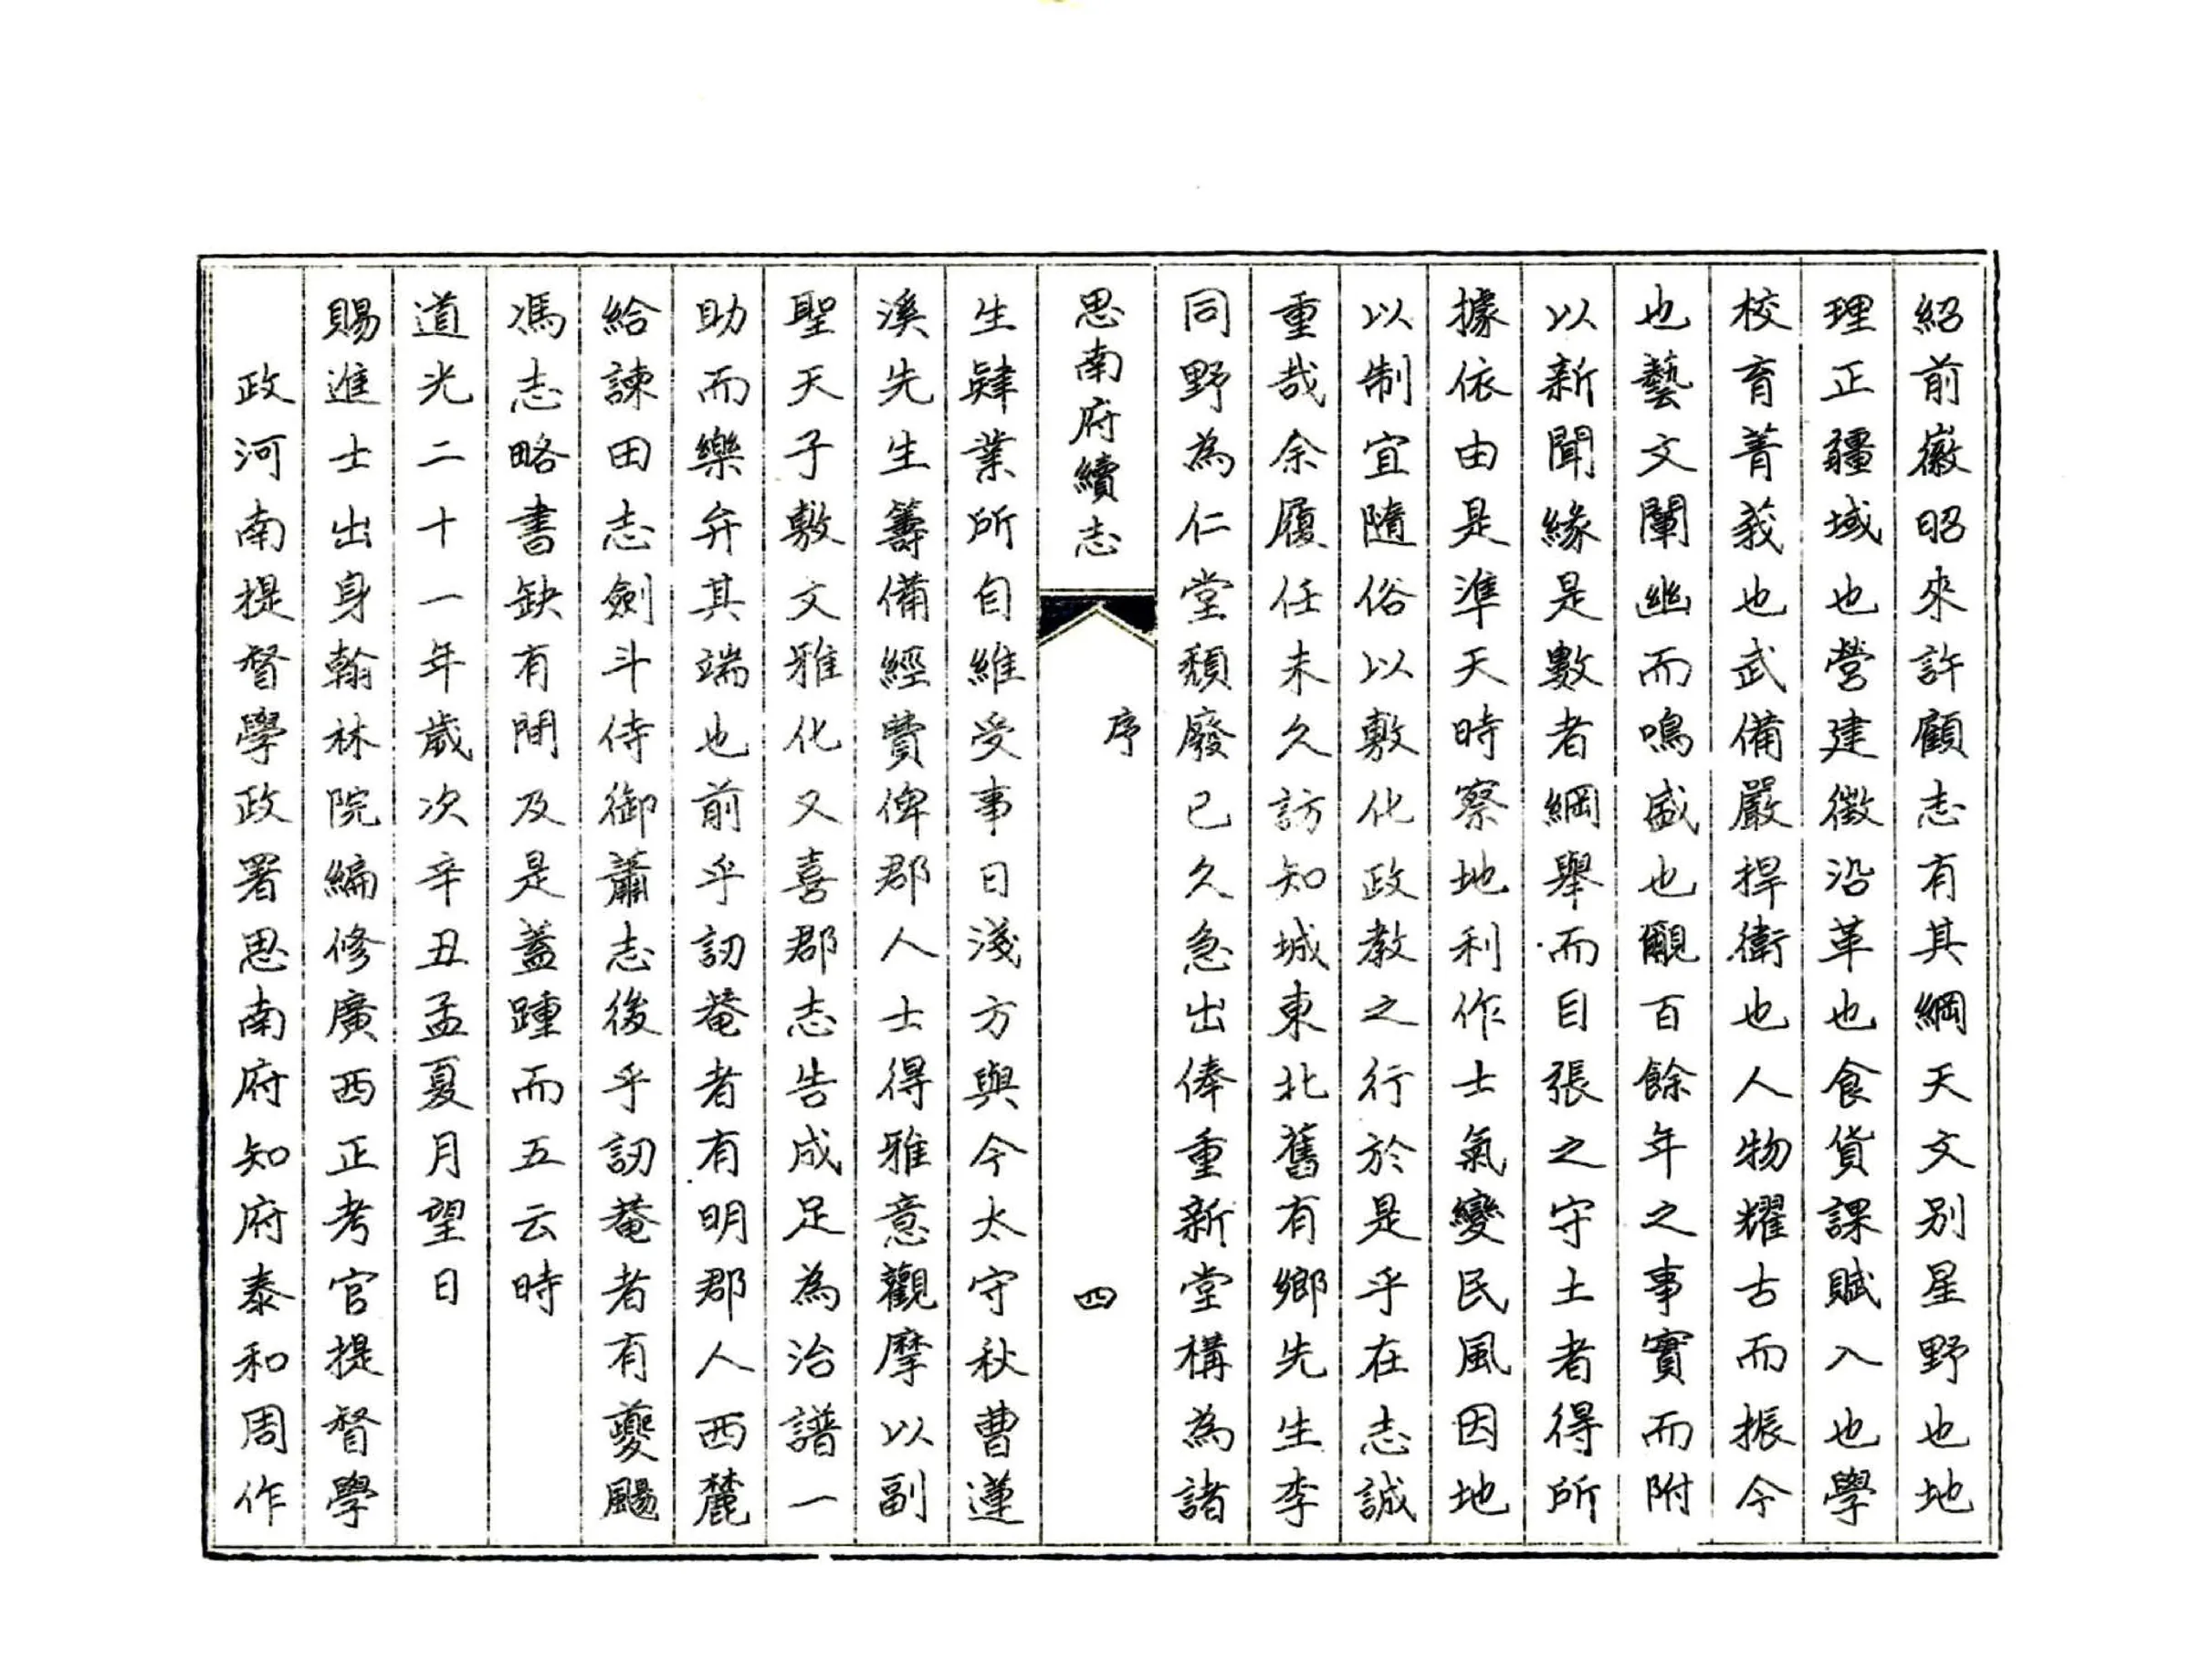 紹前徽昭來許顧志有其綱天文別星野也地
理正疆域也營建徵沿革也食貨課賦入也學
校育菁莪也武備嚴捍衛也人物耀古而振今
也藝文闡幽而鳴盛也覼百餘年之事實而附
以新聞緣是數者綱舉而目張之守土者得所
據依由是準天時察地利作士氣變民風因地
以制宜隨俗以敷化政教之行於是乎在志誠
重哉余履任未久訪知城東北舊有鄉先生李
同野為仁堂頹廢已久急出俸重新堂構為諸
思南府續志 序 四
生肄業所自維受事日淺方與今太守秋曹蓮
溪先生籌備經費俾郡人士得雅意觀摩以副
聖天子敷文雅化又喜郡志告成足為治譜一
助而樂弁其端也前乎訒菴者有明郡人西麓
給諫田志劍斗侍御蕭志後乎訒菴者有夔颺
馮志略書缺有間及是蓋踵而五云時
道光二十一年歲次辛丑孟夏月望日
賜進士出身翰林院編修廣西正考官提督學
政河南提督學政署思南府知府泰和周作